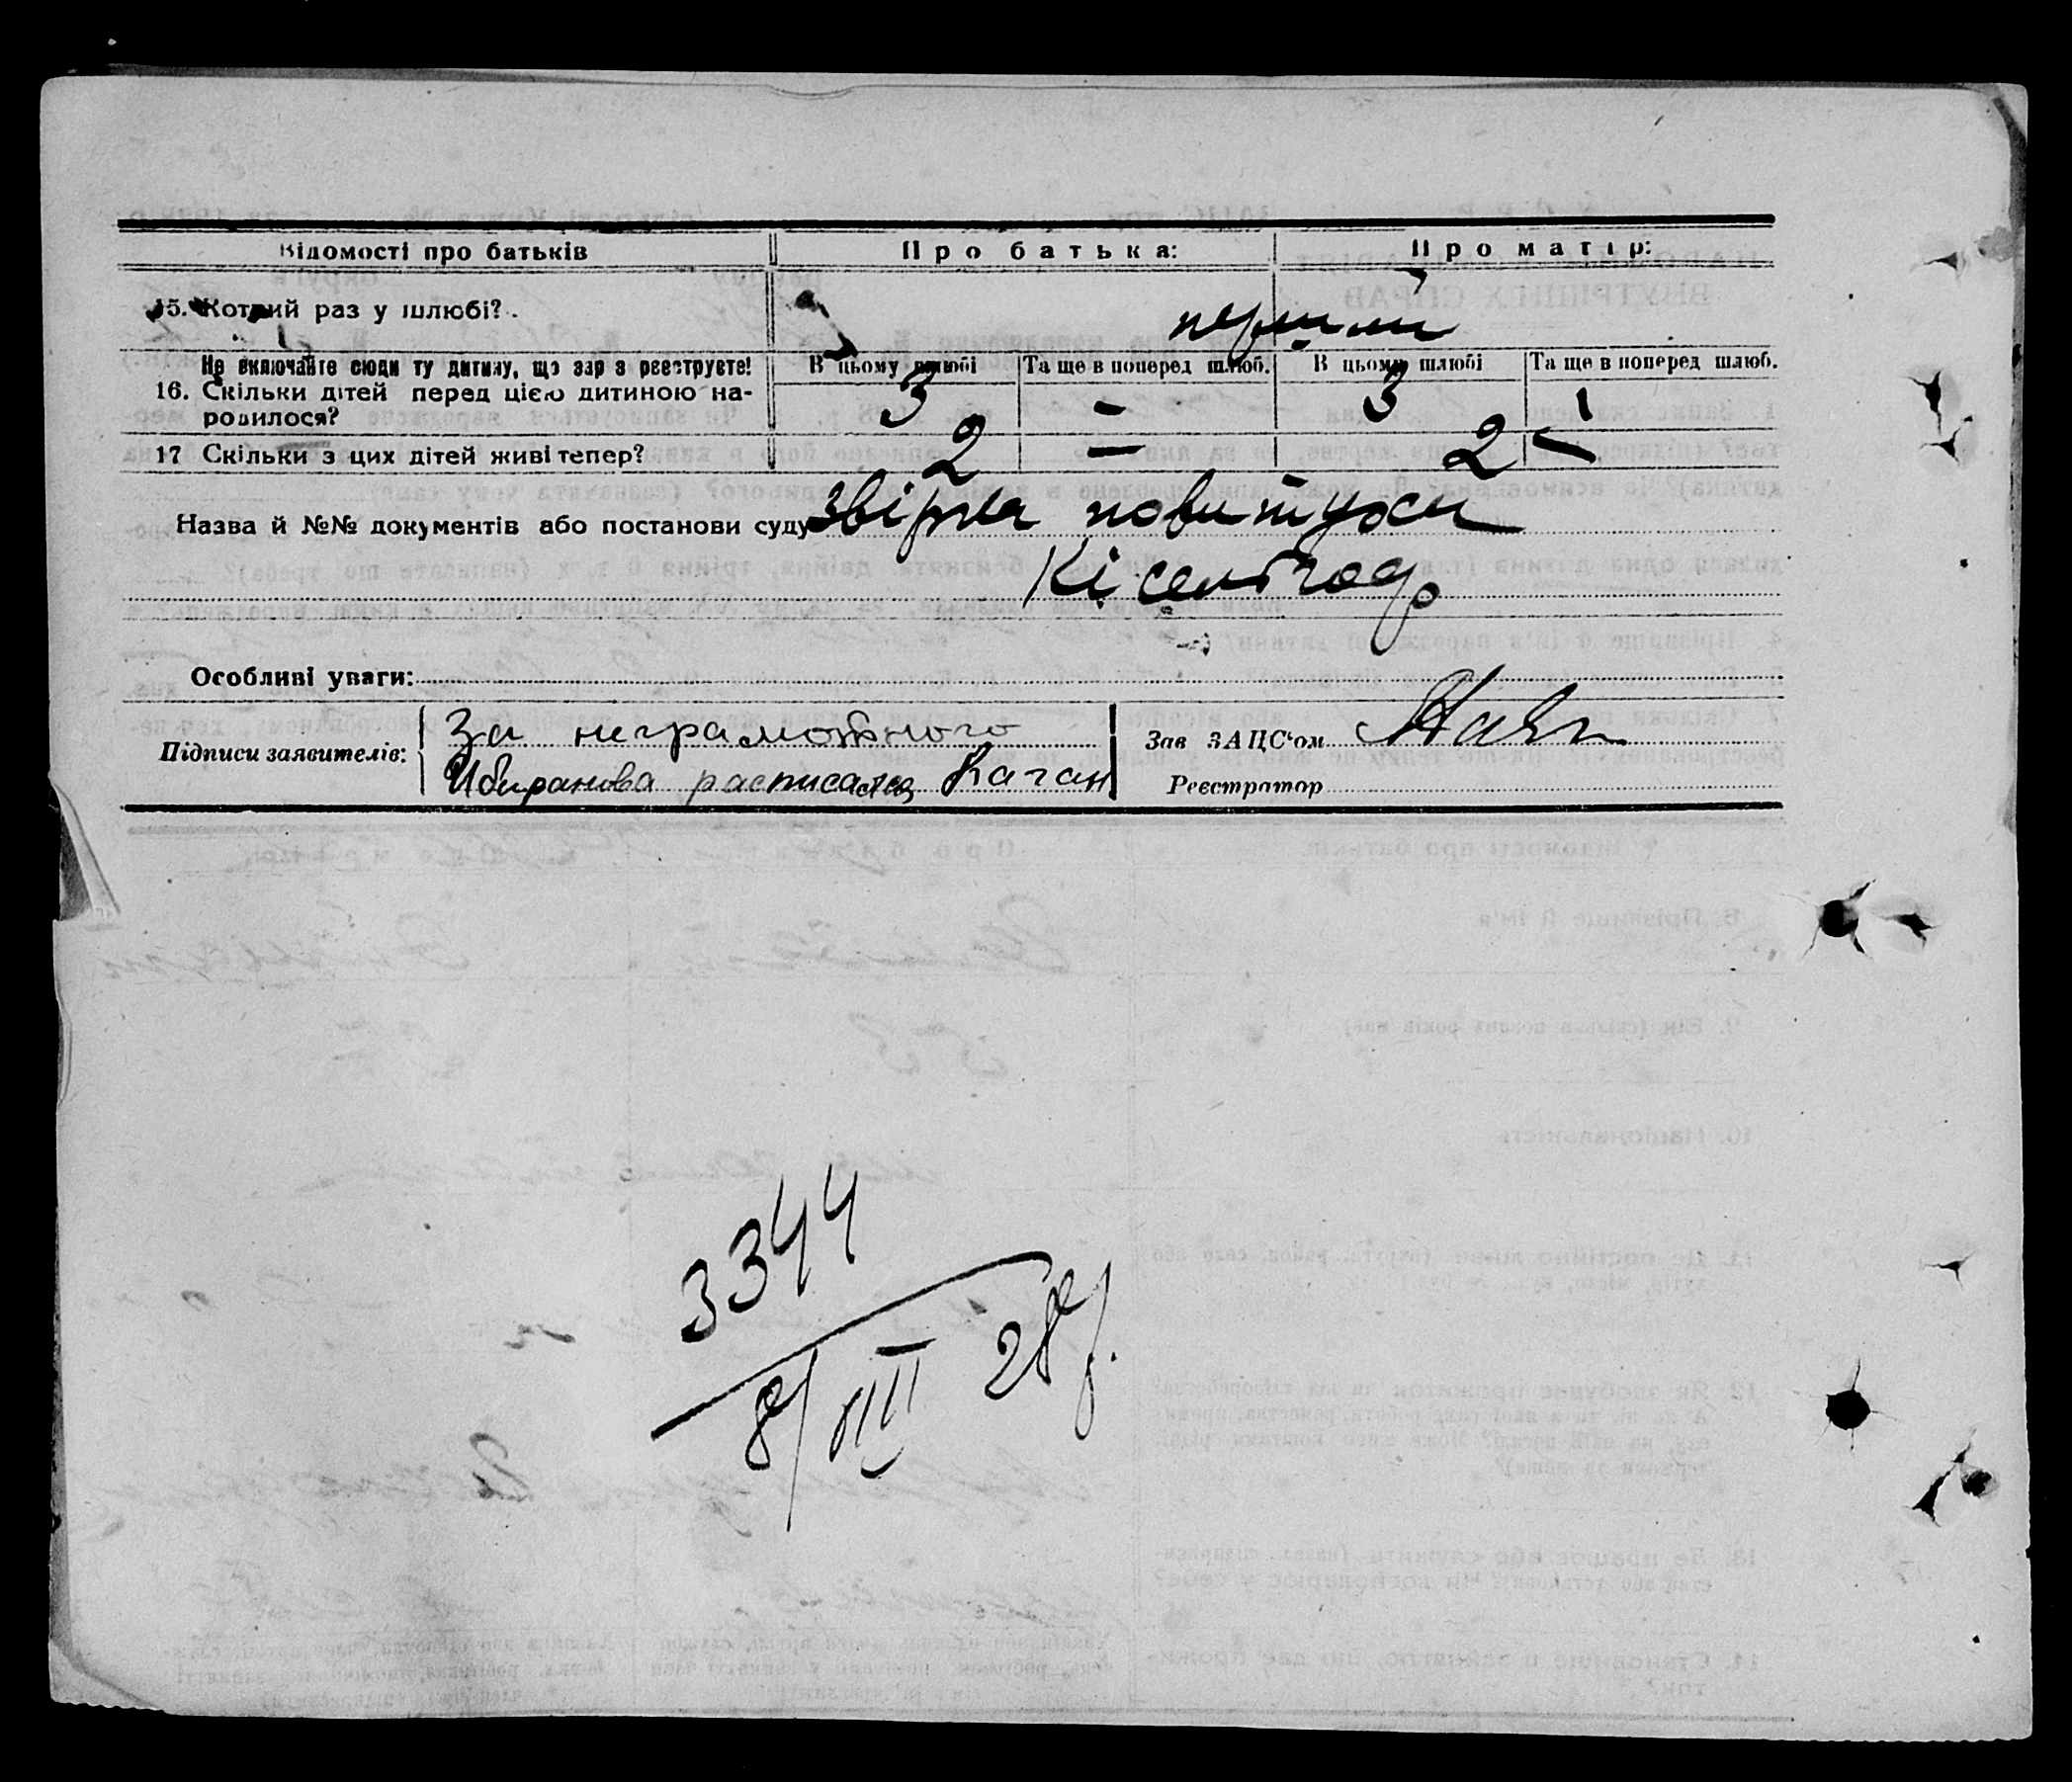 Відомості про батьків
Про батька:
Про матір:
15. Котрий раз у шлюбі?
перший
Не включайте сюди ту дитину, що зараз реєструєте!
В цьому шлюбі
Та ще в поперед шлюб.
В цьому шлюбі
Та ще в поперед шлюб.
16. Скільки дітей перед цією дитиною на-
родилося?
3
–
3
17 Скільки з цих дітей живі тепер?
2
–
2
–
Назва й №№ документів або постанови суду
повитухи
Особливі уваги:
Підписи заявителів:
За неграмотного
расписался Каган
Зав ЗАЦС'ом
Реєстратор
3344
8/VIII 28р.